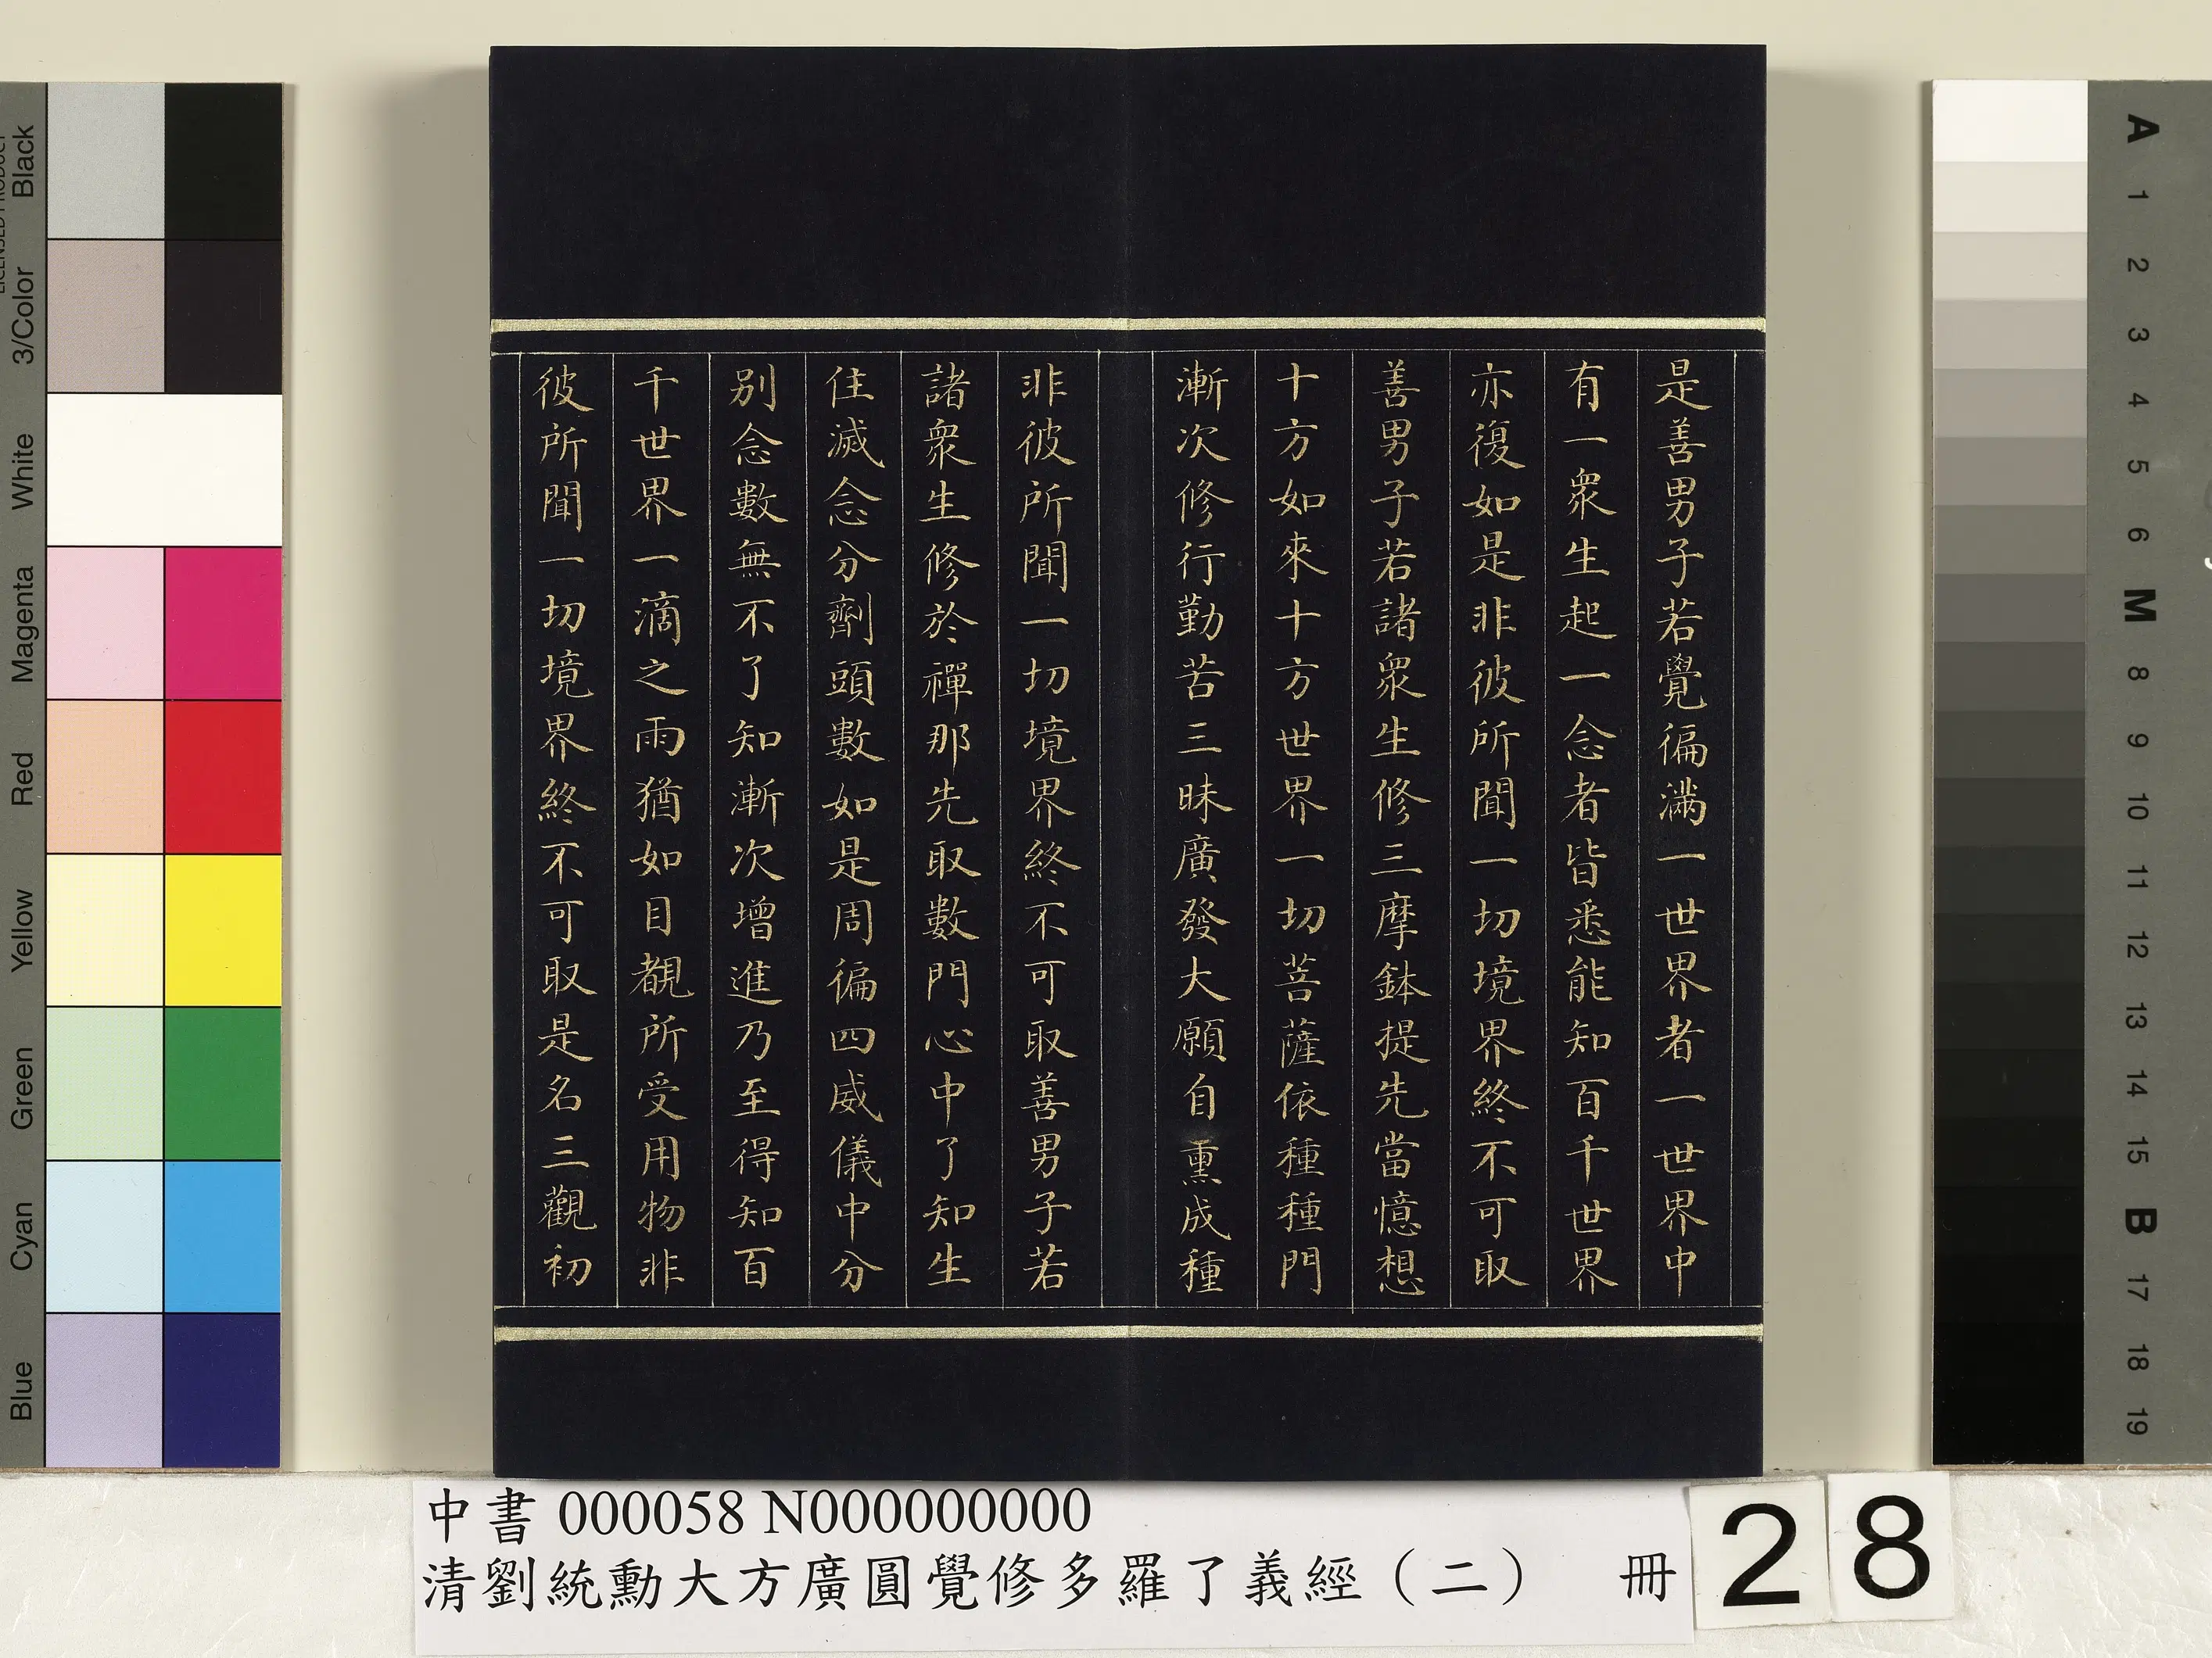 是善男子若覺徧滿一世界者一世界中
有一衆生起一念者皆悉能知百千世界
亦復如是非彼所聞一切境界終不可取
善男子若諸衆生修三摩鉢提先當憶想
十方如來十方世界一切菩薩依種種門
漸次修行勤苦三昧廣發大願自熏成種
非彼所聞一切境界終不可取善男子若
諸衆生修於禪那先取數門心中了知生
住滅念分劑頭數如是周徧四威儀中分
別念數無不了知漸次增進乃至得知百
千世界一滴之雨猶如目覩所受用物非
彼所聞一切境界終不可取是名三觀初
中書 000058 N000000000
清劉統勳大方廣圓覺修多羅了義經（二） 冊
28
Black
3/Color
White
Magenta
Red
Yellow
Green
Cyan
Blue
A
1
2
3
4
5
6
M
8
9
10
11
12
13
14
15
B
17
18
19